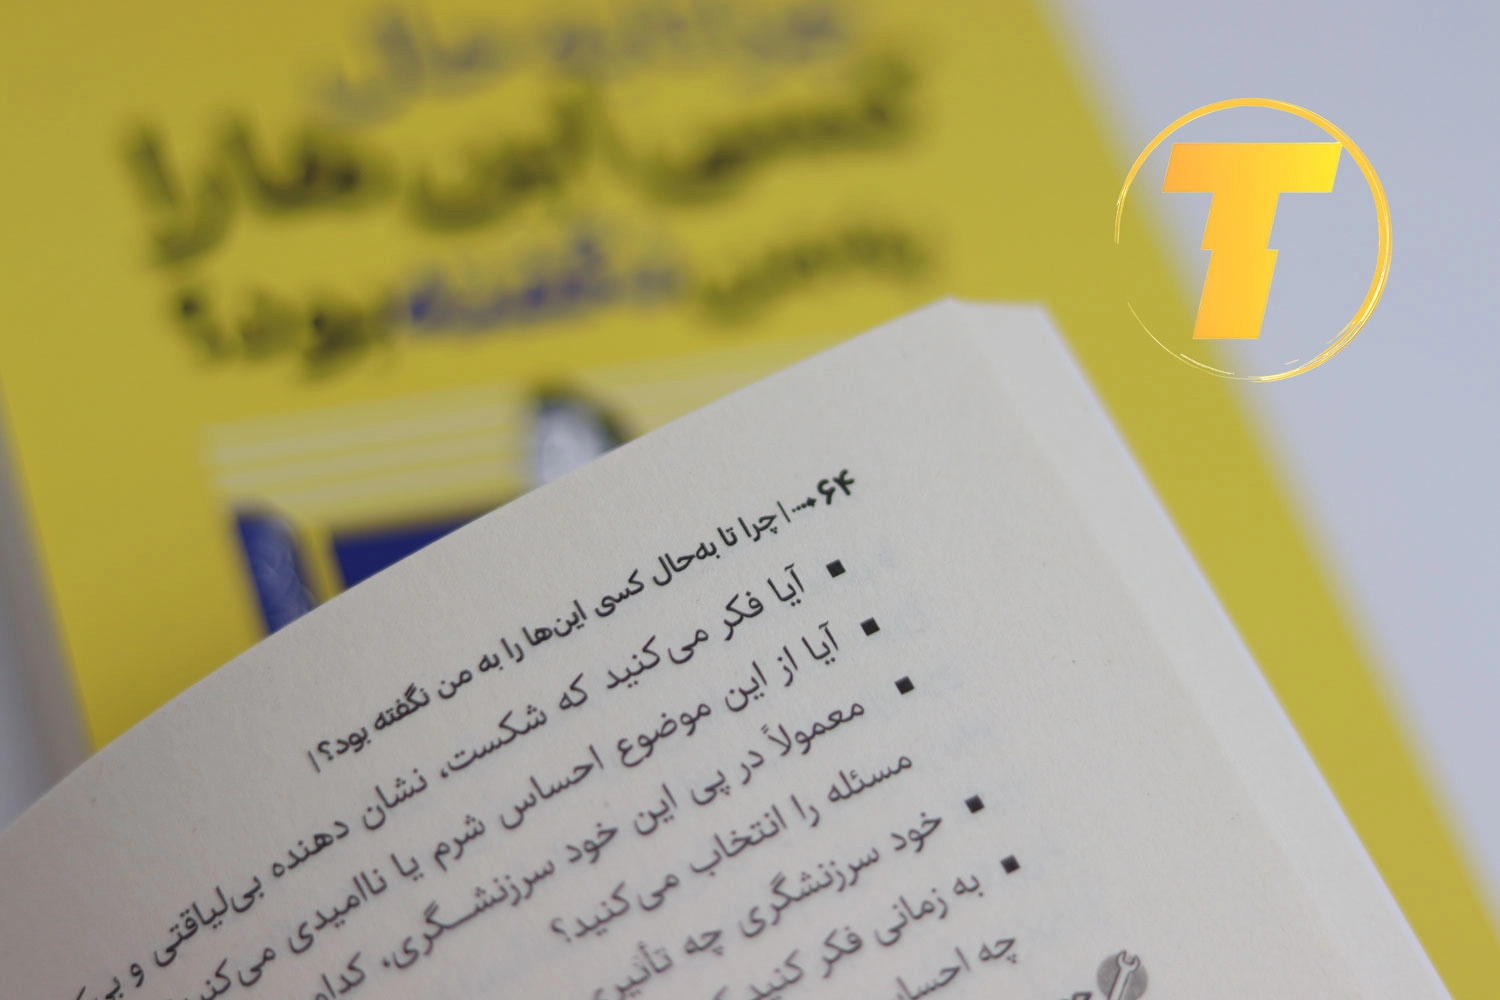 کسی این‌ها را
به من نگفته بود؟
T
۶۴ | چرا تا به‌حال کسی این‌ها را به من نگفته بود؟ |
▪ آیا فکر می‌کنید که شکست، نشان دهنده بی‌لیاقتی و
▪ آیا از این موضوع احساس شرم یا ناامیدی می‌کنید
▪ معمولاً در پی این خود سرزنشگری، کدام
مسئله را انتخاب می‌کنید؟
▪ خود سرزنشگری چه تأثیری
▪ به زمانی فکر کنید
چه احساس